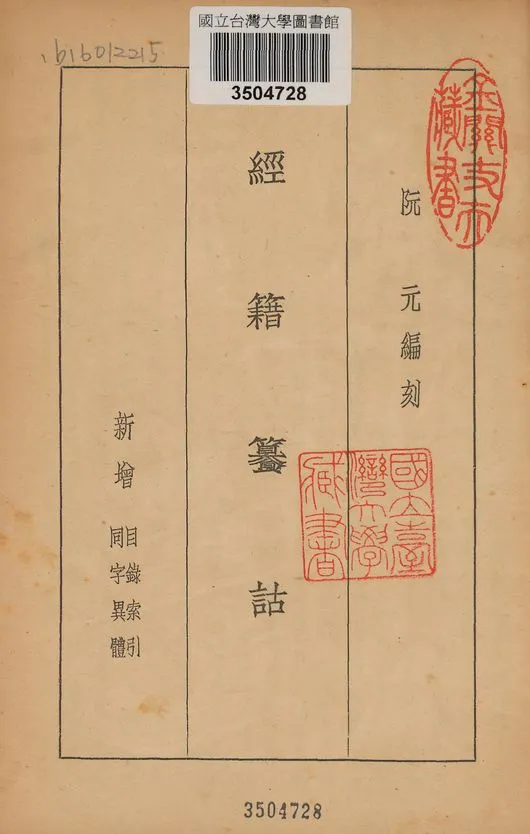 國立台灣大學圖書館
3504728
b16012215
金關丈夫
藏書
阮元編刻
經籍纂詁
國立臺
灣大學
藏書
新增
目錄索引
同字異體
3504728